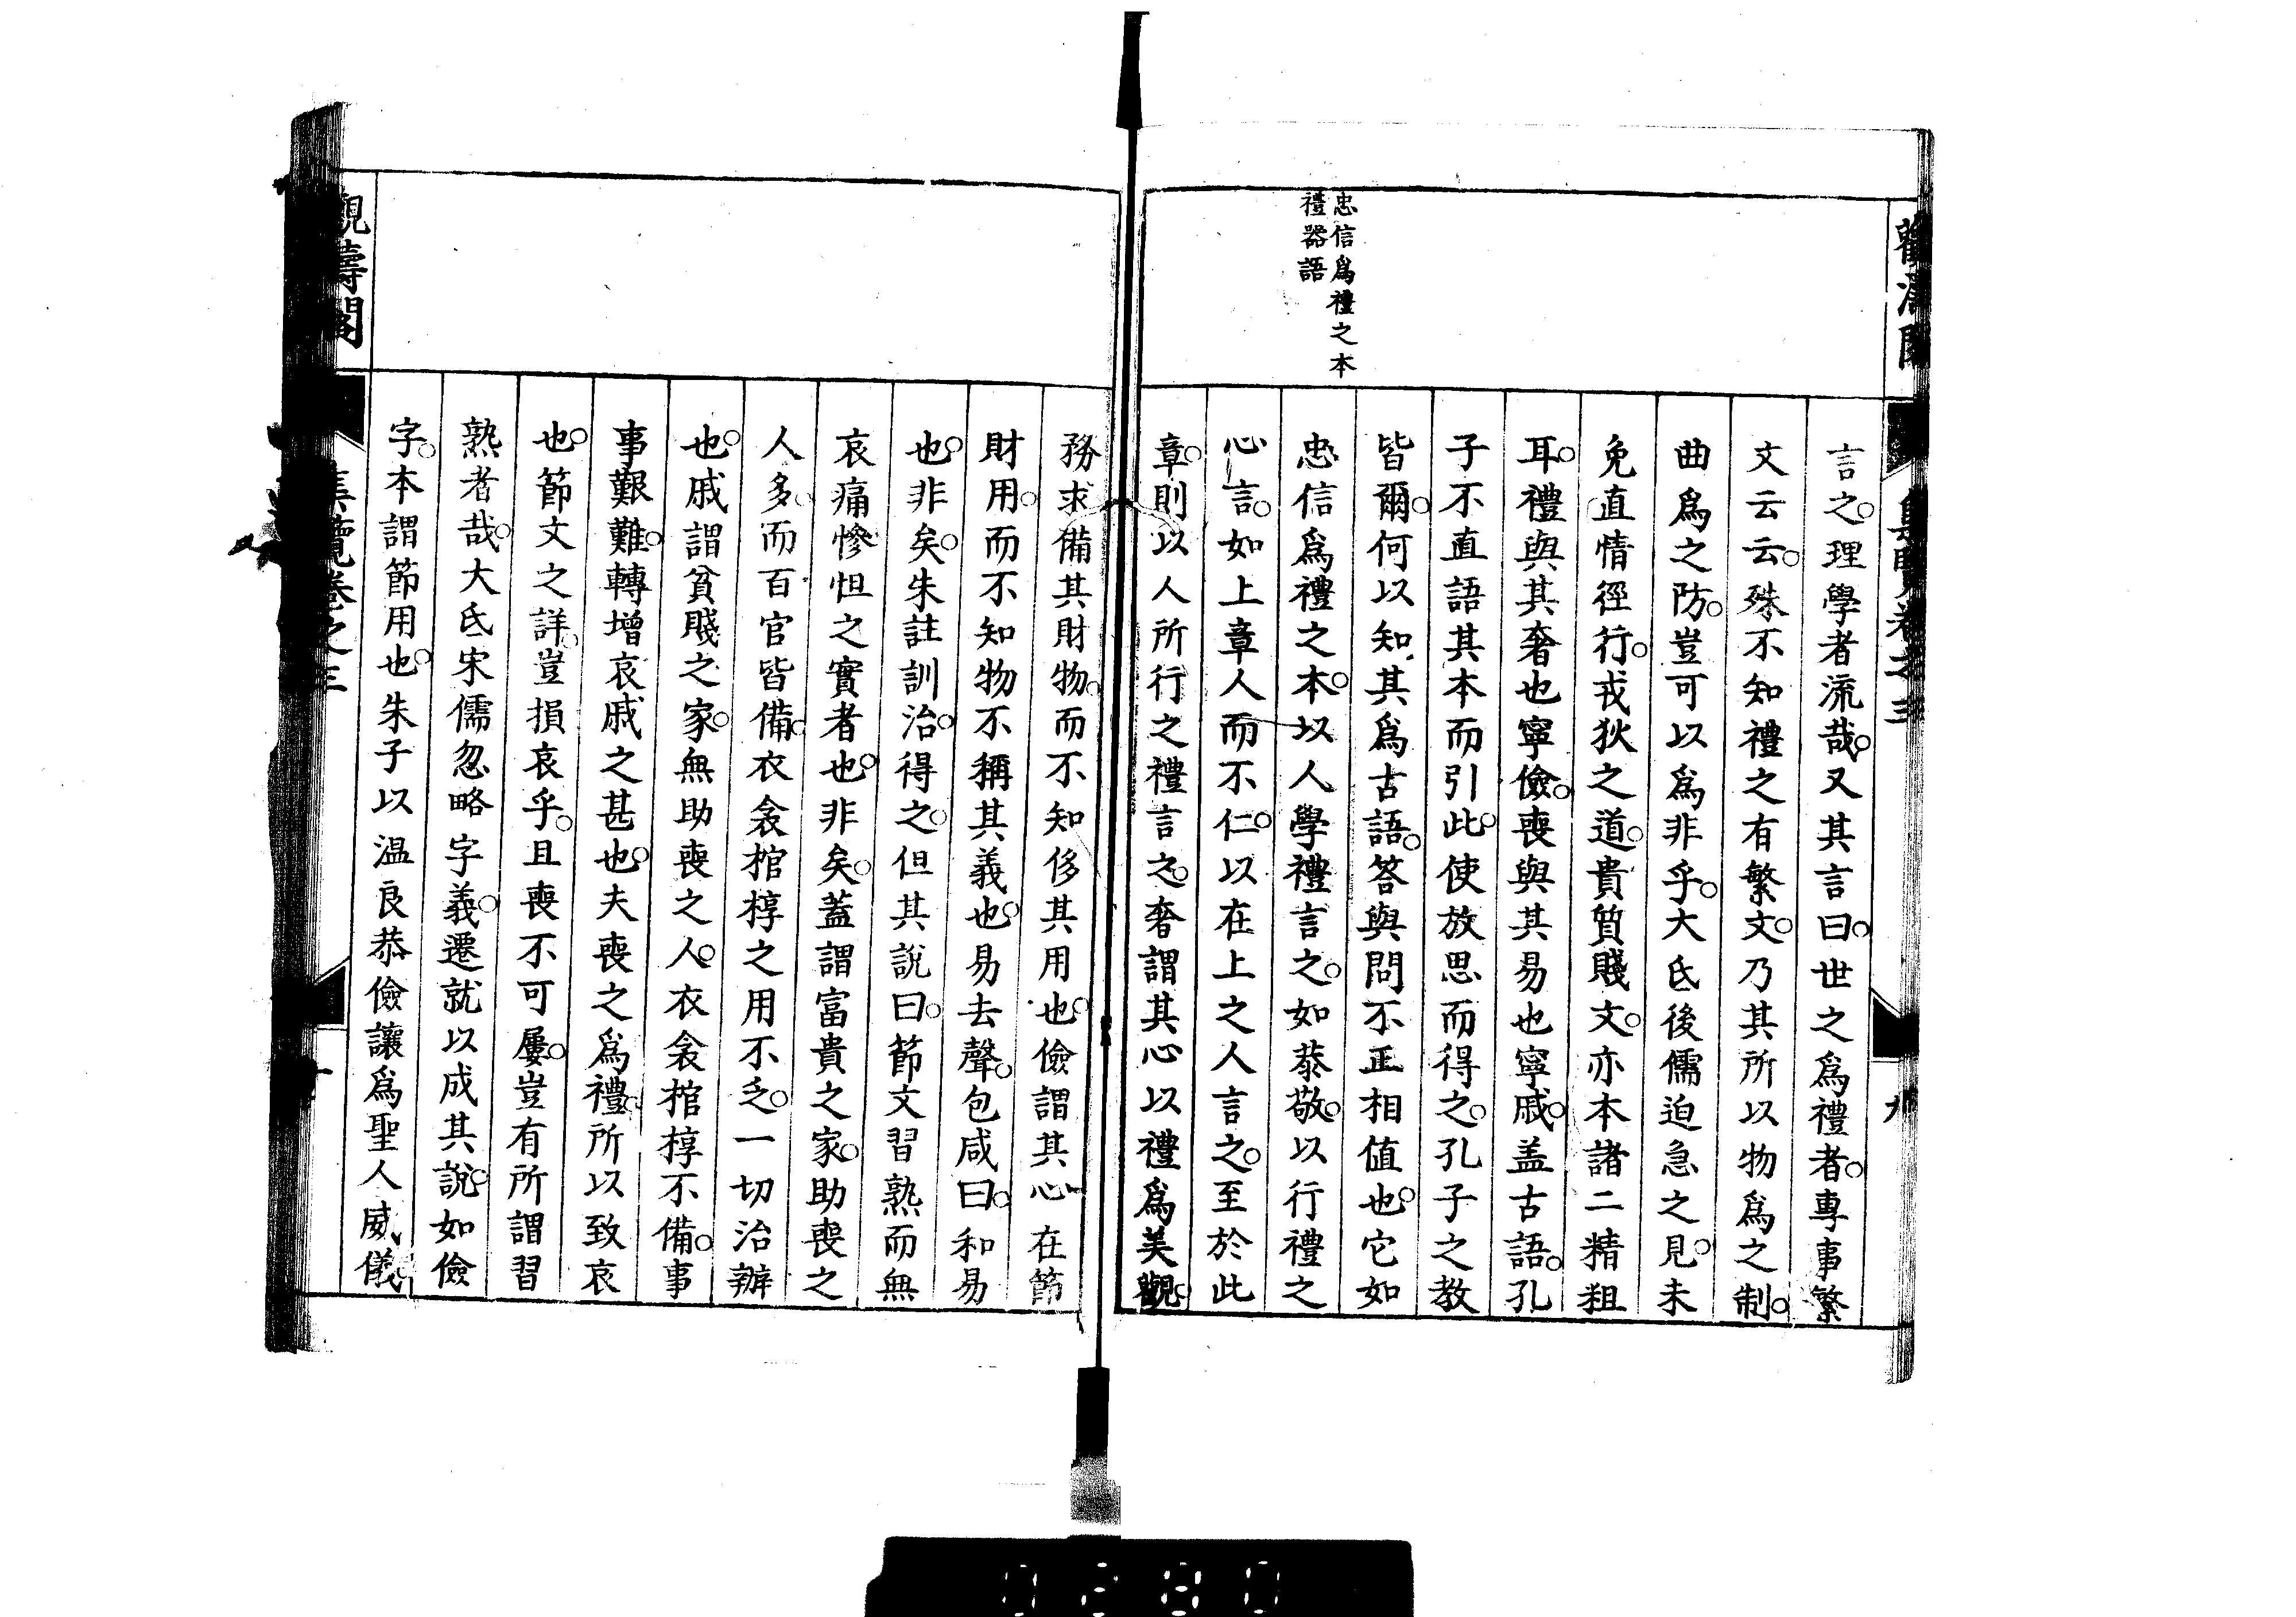 忠信爲禮之本
禮器語
言之。理學者流哉。又其言曰。世之爲禮者。專事繁
文云云。殊不知禮之有繁文。乃其所以物爲之制。
曲爲之防。豈可以爲非乎。大氐後儒迫急之見。未
免直情徑行。戎狄之道。貴質賤文。亦本諸二精粗
耳。禮與其奢也寧儉。喪與其易也寧戚。盖古語。孔
子不直語其本而引此。使放思而得之。孔子之教
皆爾。何以知其爲古語。答與問不正相値也。它如
忠信爲禮之本。以人學禮言之。如恭敬。以行禮之
心言。如上章人而不仁。以在上之人言之。至於此
章。則以人所行之禮言之。奢謂其心以禮爲美觀。
務求備其財物。而不知侈其用也。儉謂其心在節
財用。而不知物不稱其義也。易去聲。包咸曰。和易
也。非矣。朱註訓治。得之。但其說曰。節文習熟而無
哀痛慘怛之實者也。非矣。蓋謂富貴之家。助喪之
人多。而百官皆備。衣衾棺椁之用不乏。一切治辦
也。戚謂貧賤之家。無助喪之人。衣衾棺椁不備。事
事艱難。轉增哀戚之甚也。夫喪之爲禮。所以致哀
也。節文之詳。豈損哀乎。且喪不可屢。豈有所謂習
熟者哉。大氐宋儒忽略字義。遷就以成其說。如儉
字。本謂節用也。朱子以溫良恭儉讓爲聖人威儀
觀濤閣
集覽卷之三